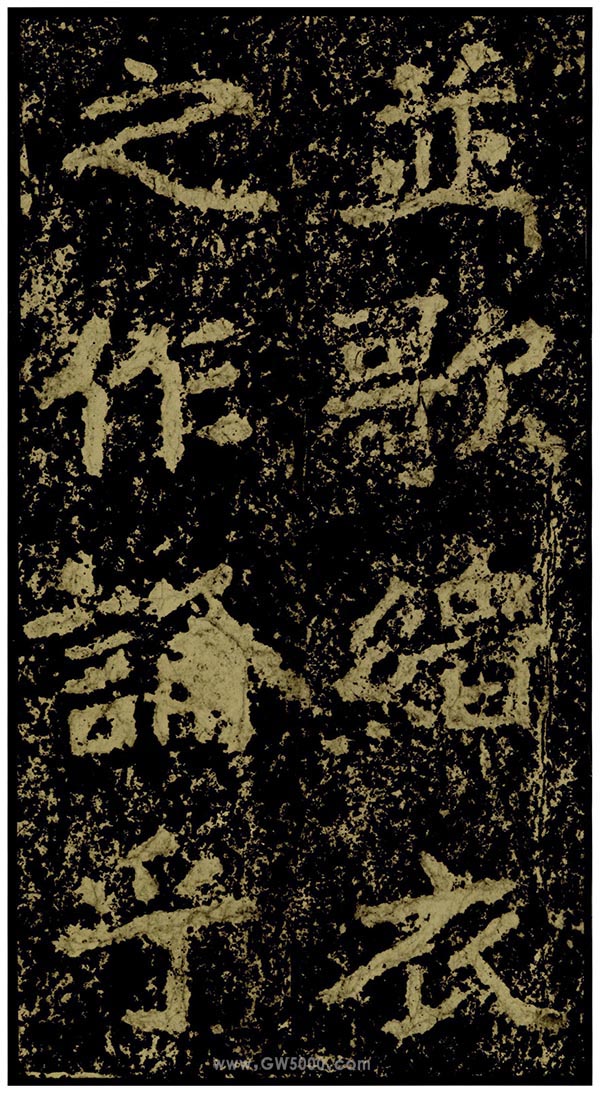 並歌緇衣
之作論乎
www.GW5000.com